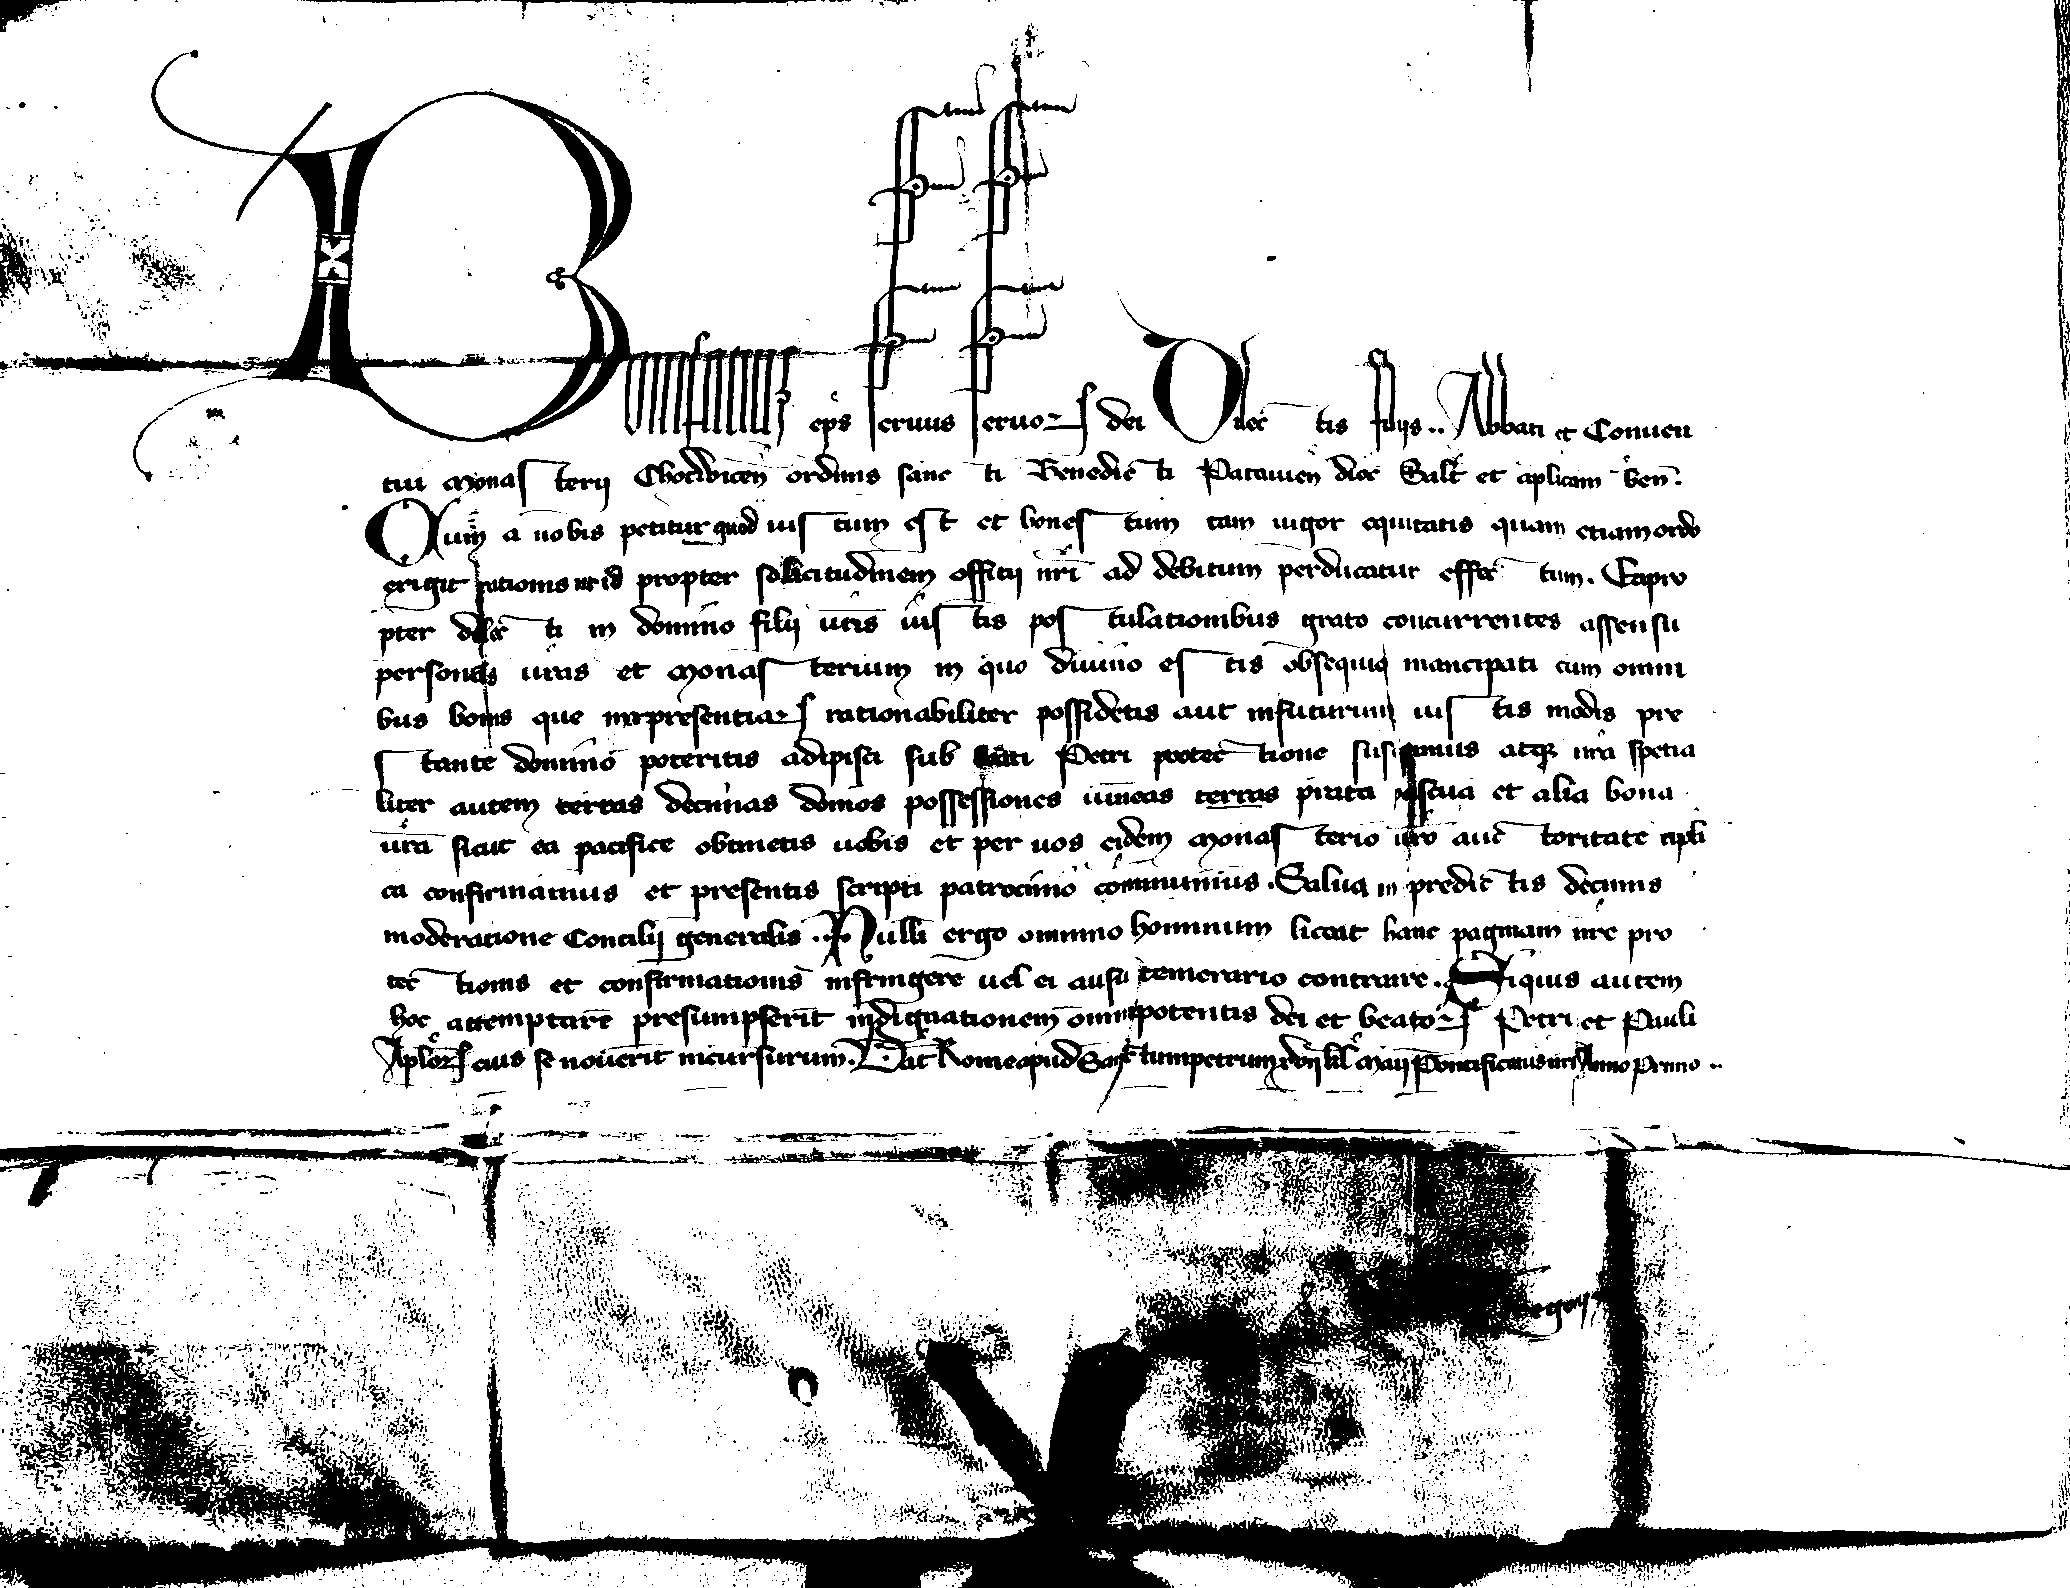 Bonifatius eps seruus seruoꝝ dei Dilectis filijs .. Abbati et Conuen
tui Monasterij Chotwicen ordinis sancti Benedicti Patauien dioc Salt et aplicam ben.
Cum a nobis petitur quod iustum est et honestum tam uigor equitatis quam etiam ordo
exigit rationis ut id propter sollicitudinem offitij nri ad debitum perducatur effectum. Eapro
pter dilecti in domino filij uris iustis postulationibus grato concurrentes assensu
personas uras et Monasterium in quo diuino estis obsequio mancipati cum omni
bus bonis que inpresentiaꝝ rationabiliter possidetis aut infuturum iustis modis pre
stante domino poteritis adipisci sub beati Petri protectione suscipimus atqꝫ nra spetia
liter autem terras decimas domos possessiones uineas terras prata pascua et alia bona
ura sicut ea pacifice obtinetis uobis et per uos eidem Monasterio uro auctoritate apli
ca confirmamus et presentis scripti patrocinio communimus. Salua in predictis decimis
moderatione Concilij generalis. Nulli ergo omnino hominum liceat hanc paginam nre pro
tectionis et confirmationis infringere uel ei ausu temerario contraire. Siquis autem
hoc attemptare presumpserit indignationem omnipotentis dei et beatoꝝ Petri et Pauli
Aploꝝ eius se nouerit incursurum. Dat Rome apud Sanctum petrum xviij kl Maij Pontificatus nri Anno Primo ..